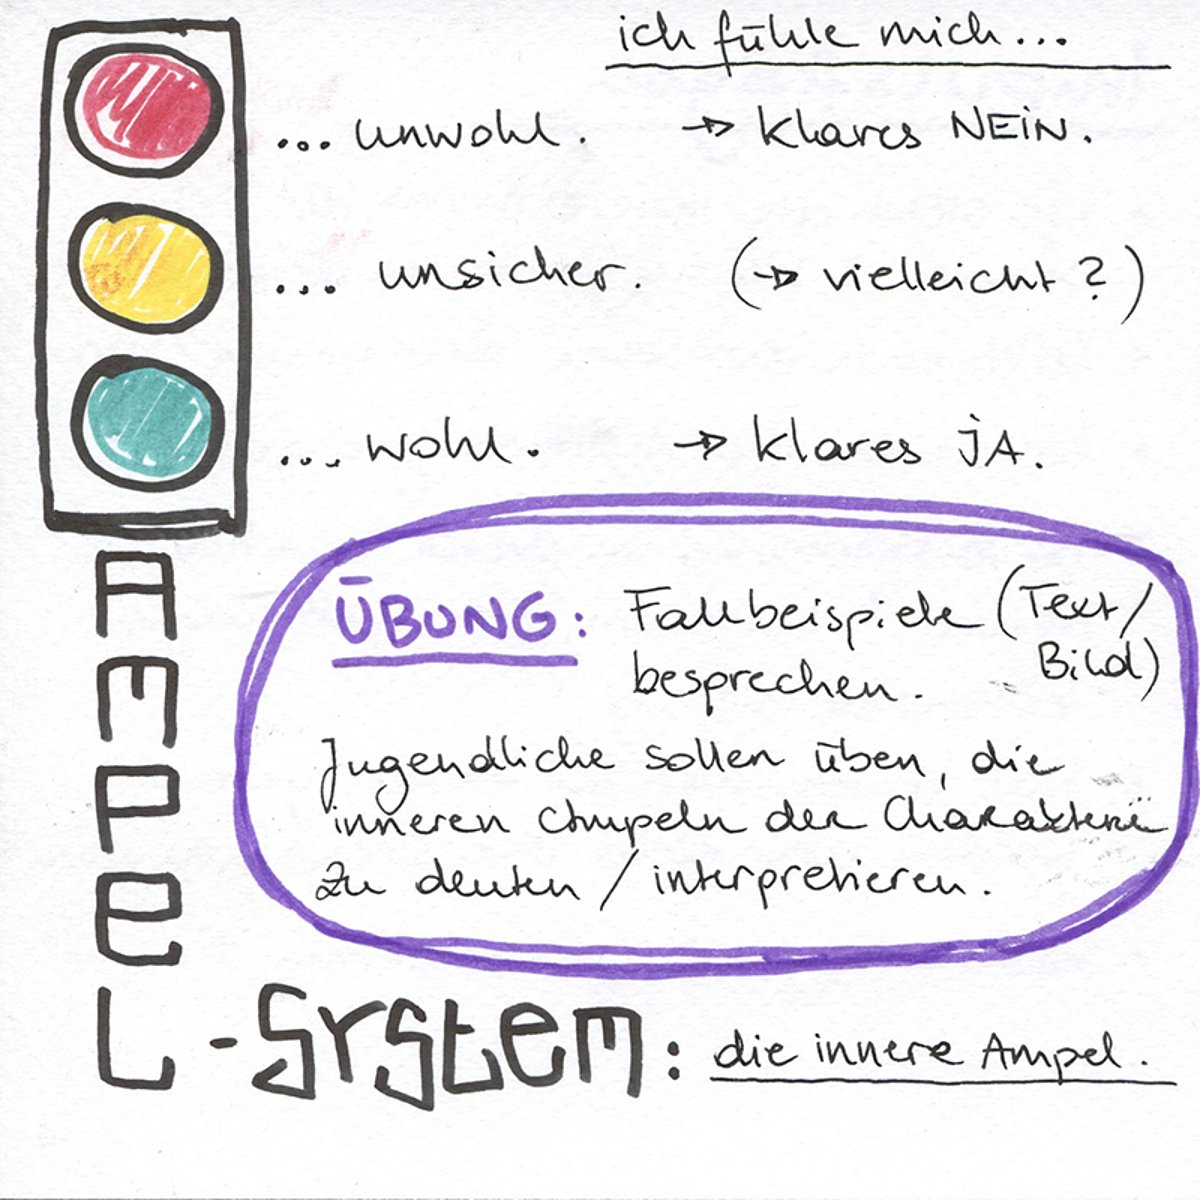 ich fühle mich...
... unwohl. → klares NEiN.
... unsicher. (→ vielleicht?)
... wohl. → klares jA.
ÜBUNG: Fallbeispiele (Text/
Bild)
besprechen.
Jugendliche sollen üben, die
inneren Ampeln der Charaktere
zu deuten / interpretieren.
AMPeL-SYSteM: die innere Ampel.